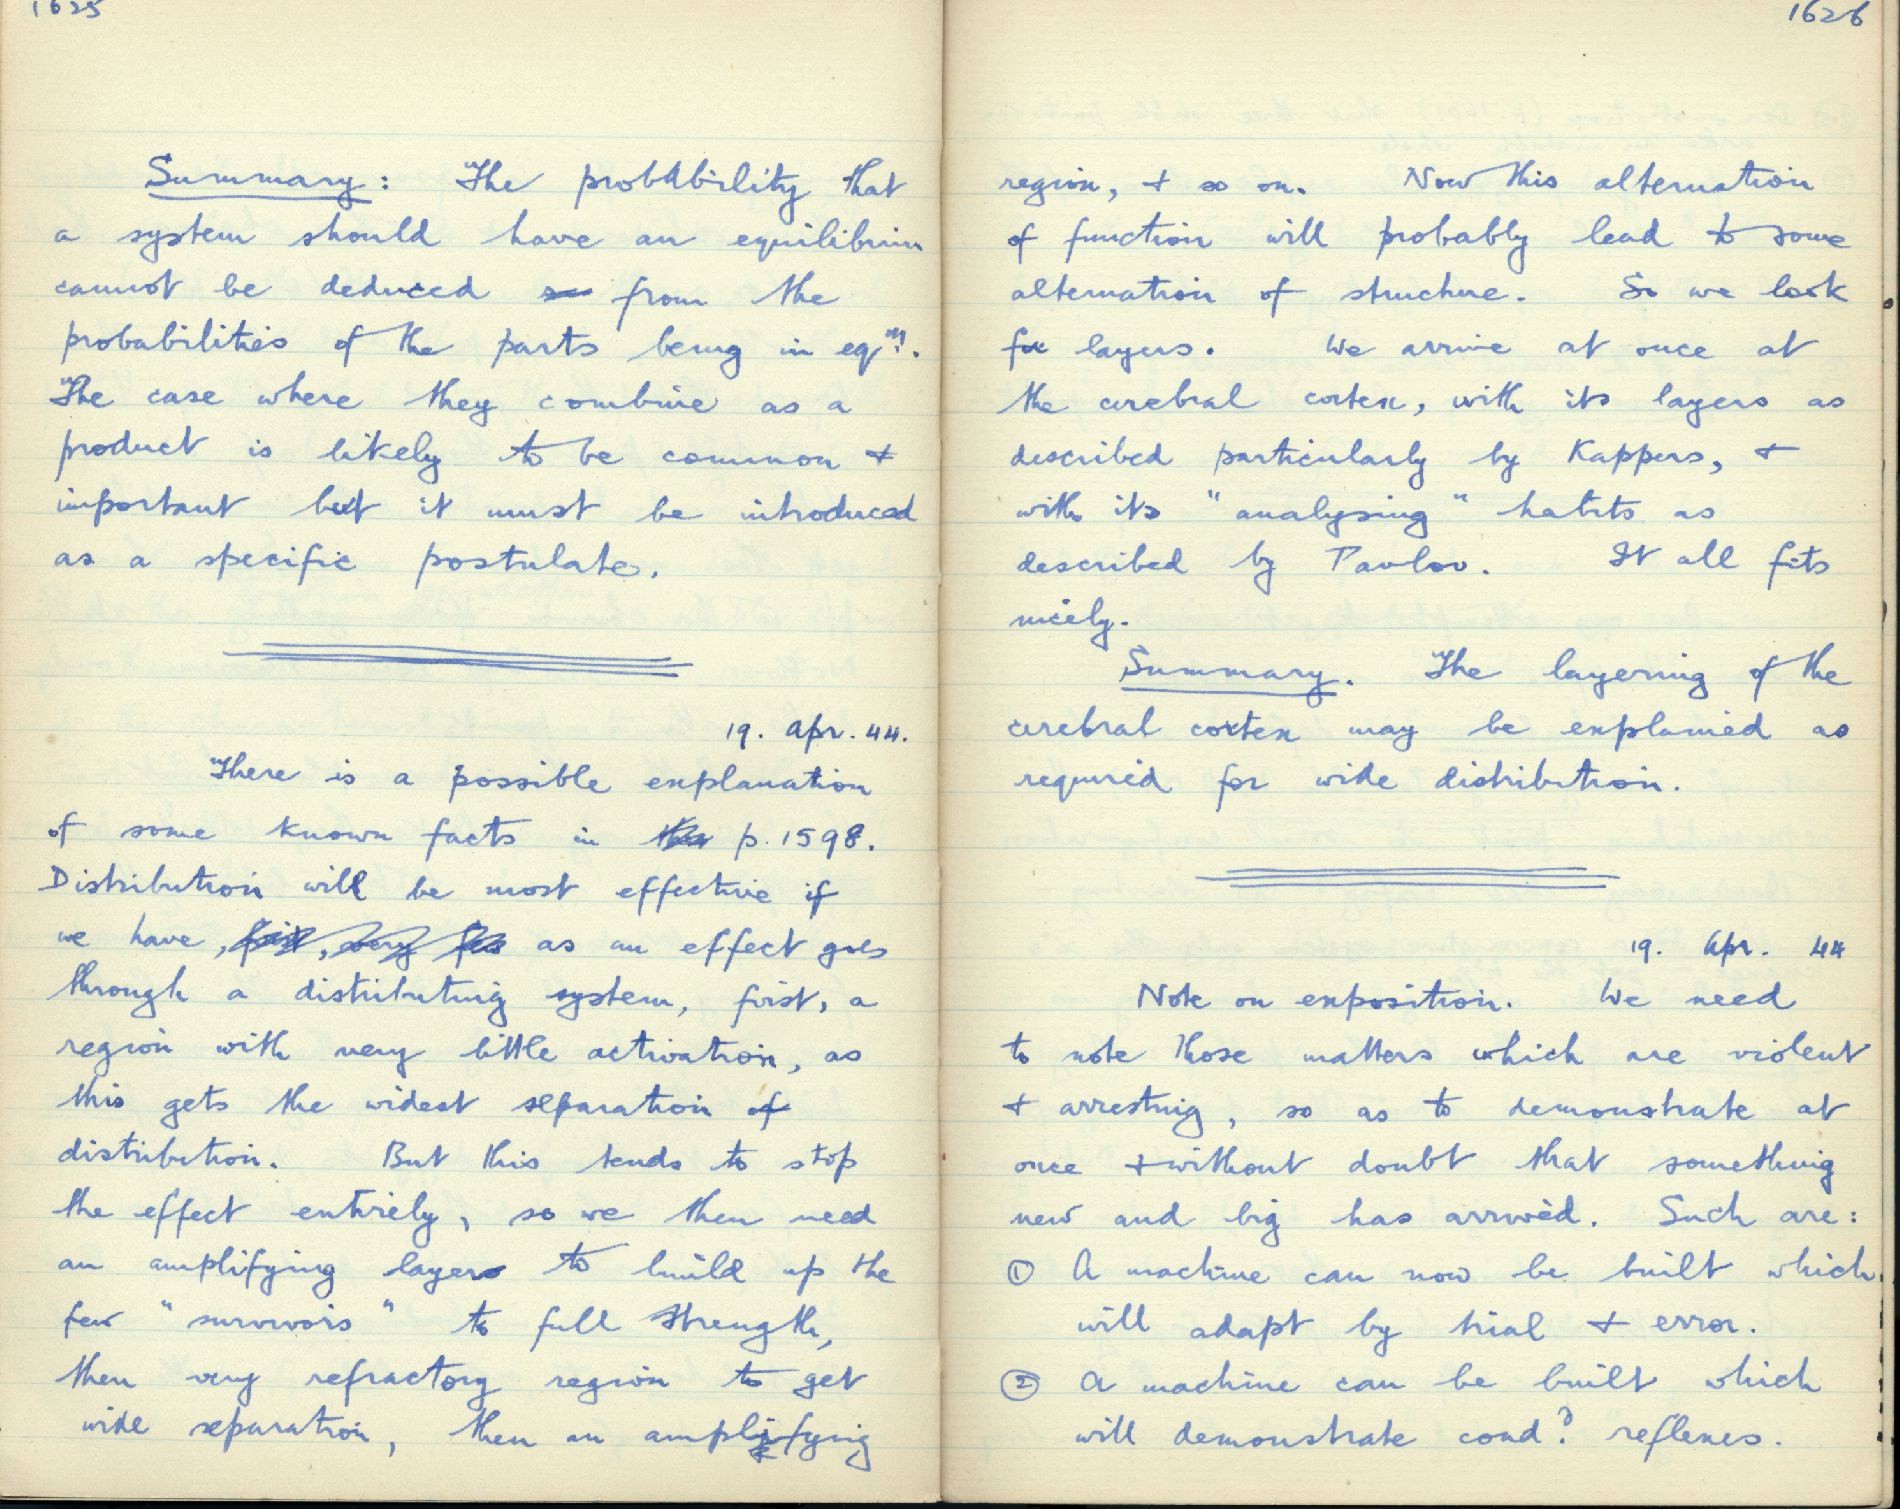 1625
Summary: The probability that
a system should have an equilibrium
cannot be deduced from the
probabilities of the parts being in eqm.
The case where they combine as a
product is likely to be common +
important but it must be introduced
as a specific postulate.
19. Apr. 44.
There is a possible explanation
of some known facts in p. 1598.
Distribution will be most effective if
we have, as an effect goes
through a distributing system, first, a
region with very little activation, as
this gets the widest separation of
distribution. But this tends to stop
the effect entirely, so we then need
an amplifying layer to build up the
few "survivors" to full strength,
then very refractory region to get
wide separation, then an amplifying
1626
region, + so on. Now this alternation
of function will probably lead to some
alternation of structure. So we look
for layers. We arrive at once at
the cerebral cortex, with its layers as
described particularly by Kappers, +
with its "analysing" habits as
described by Pavlov. It all fits
nicely.
Summary. The layering of the
cerebral cortex may be explained as
required for wide distribution.
19. Apr. 44
Note on exposition. We need
to note those matters which are violent
+ arresting, so as to demonstrate at
once + without doubt that something
new and big has arrived. Such are:
① A machine can now be built which
will adapt by trial + error.
② A machine can be built which
will demonstrate cond.d reflexes.